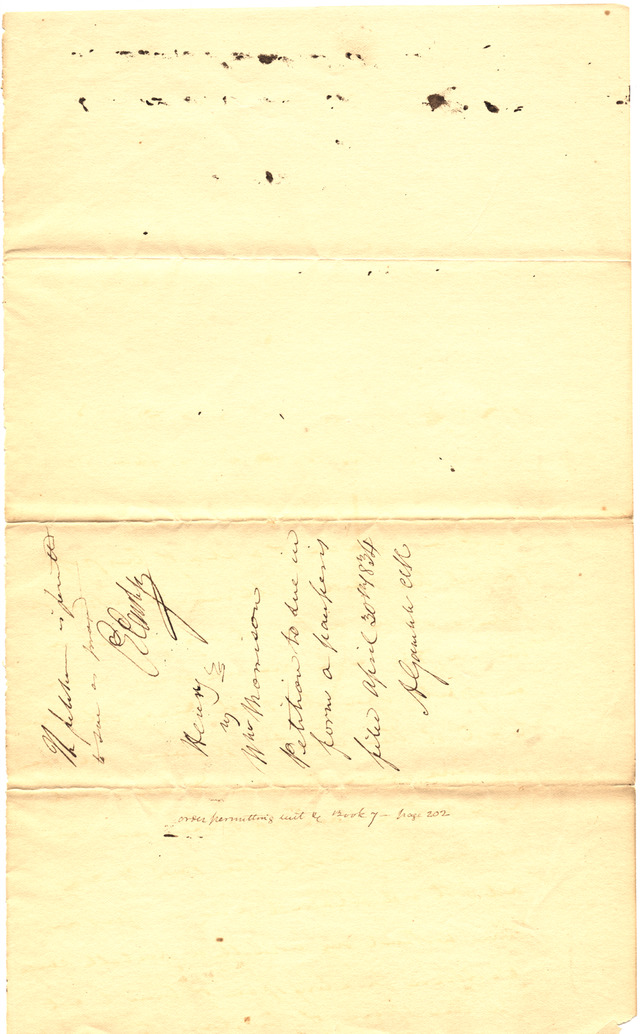 The petition is permitted
to sue as prayed
Henry
vs
Wm Morrison
Petition to sue in
form a pauperis
filed April 30th 1834
A Gamble Clk
order permitting suit &c Book 7 – page 202